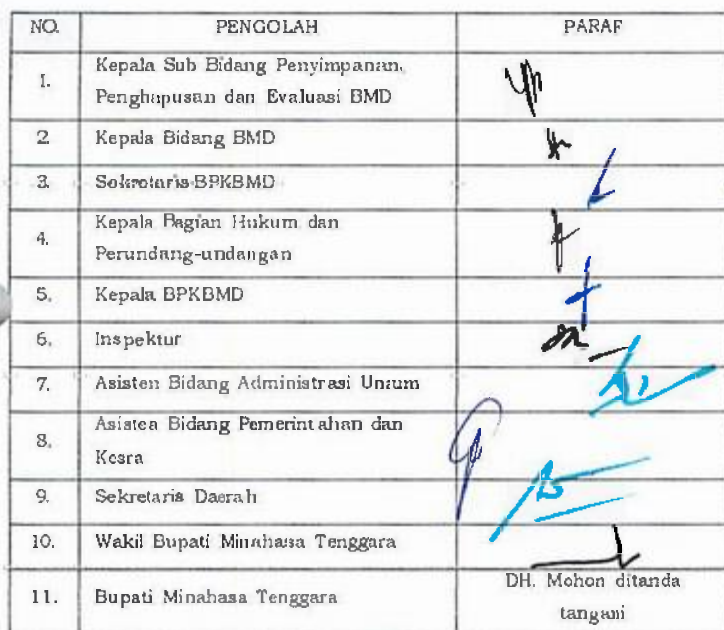 NO. PENGOLAH PARAF
1. Kepala Sub Bidang Penyimpanan,
Penghapusan dan Evaluasi BMD
2. Kepala Bidang BMD
3. Sekretaris BPKBMD
4. Kepala Bagian Hukum dan
Perundang-undangan
5. Kepala BPKBMD
6. Inspektur
7. Asisten Bidang Administrasi Umum
8. Asisten Bidang Pemerintahan dan
Kesra
9. Sekretaris Daerah
10. Wakil Bupati Minahasa Tenggara
11. Bupati Minahasa Tenggara DH. Mohon ditanda
tangani